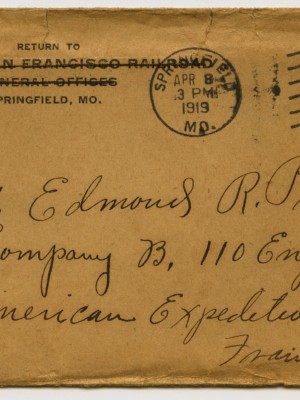 RETURN TO
N FRANCISCO RAILROAD
GENERAL OFFICES
SPRINGFIELD, MO.
SPRINGFIELD
APR 8
3 PM
1919
MO.
Edmond R. P
ompany B, 110 Eng
merican Expeditio
Fran